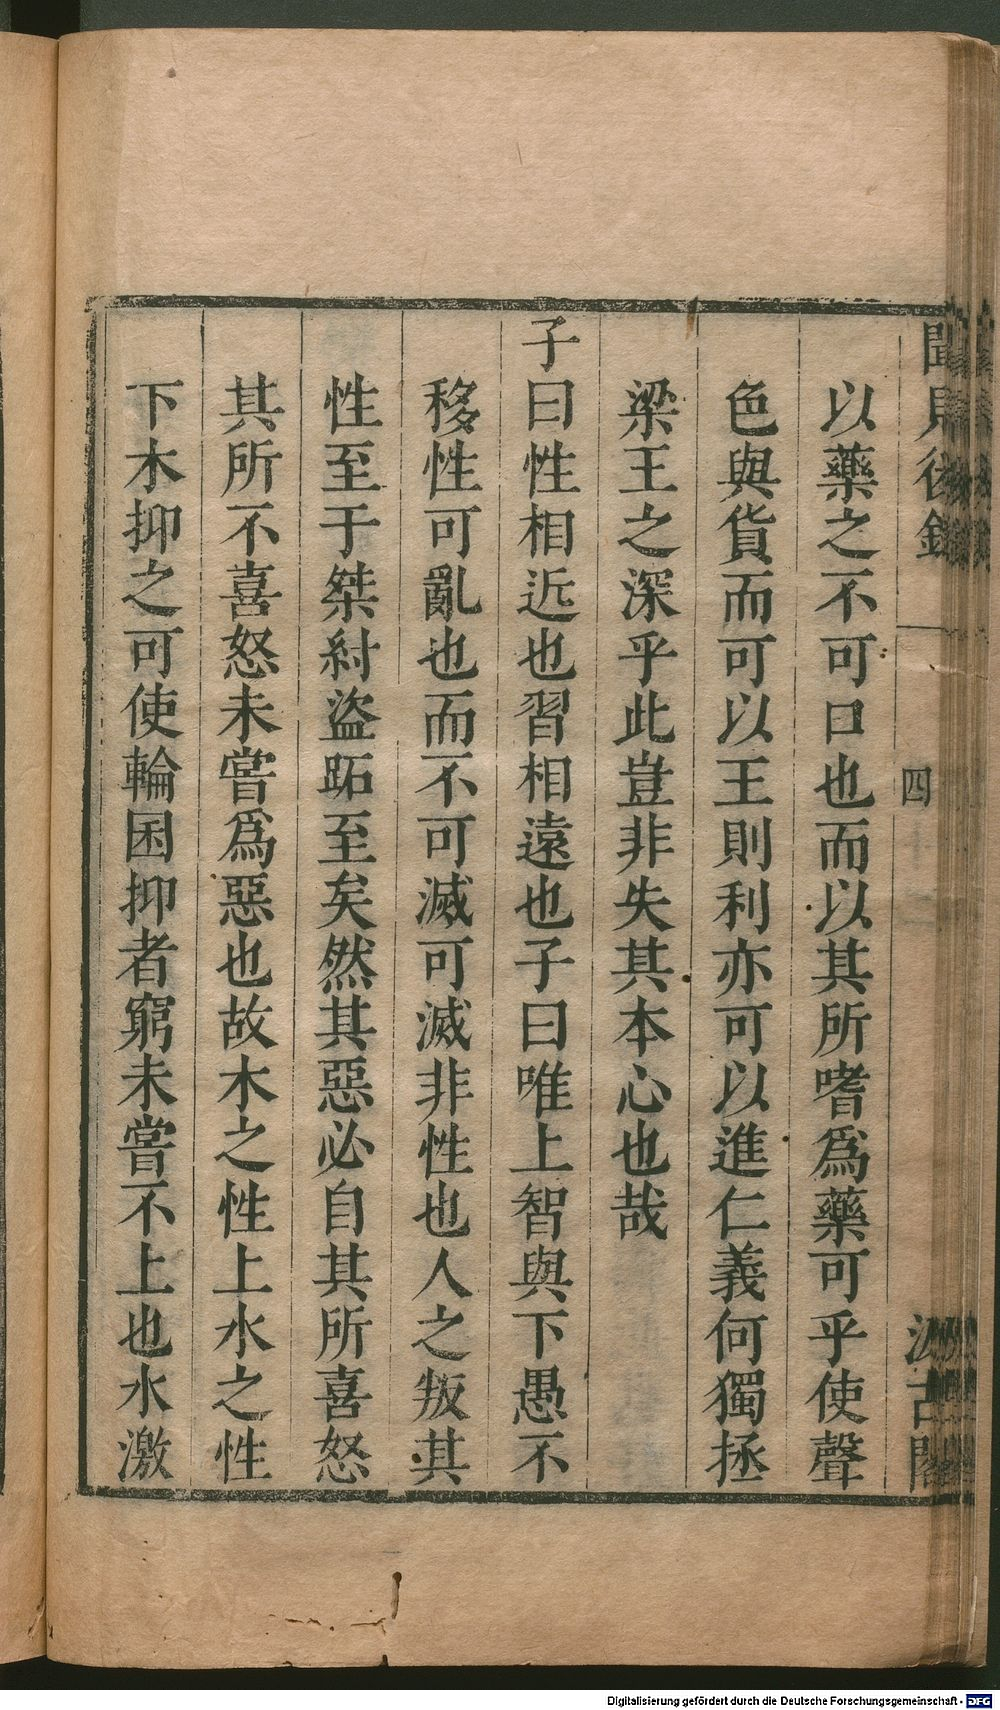 聞見後錄
四
汲古閣
以藥之不可口也而以其所嗜爲藥可乎使聲
色與貨而可以王則利亦可以進仁義何獨拯
梁王之深乎此豈非失其本心也哉
子曰性相近也習相遠也子曰唯上智與下愚不
移性可亂也而不可滅可滅非性也人之叛其
性至于桀紂盜跖至矣然其惡必自其所喜怒
其所不喜怒未嘗爲惡也故木之性上水之性
下木抑之可使輪囷抑者窮未嘗不上也水激
Digitalisierung gefördert durch die Deutsche Forschungsgemeinschaft - DFG